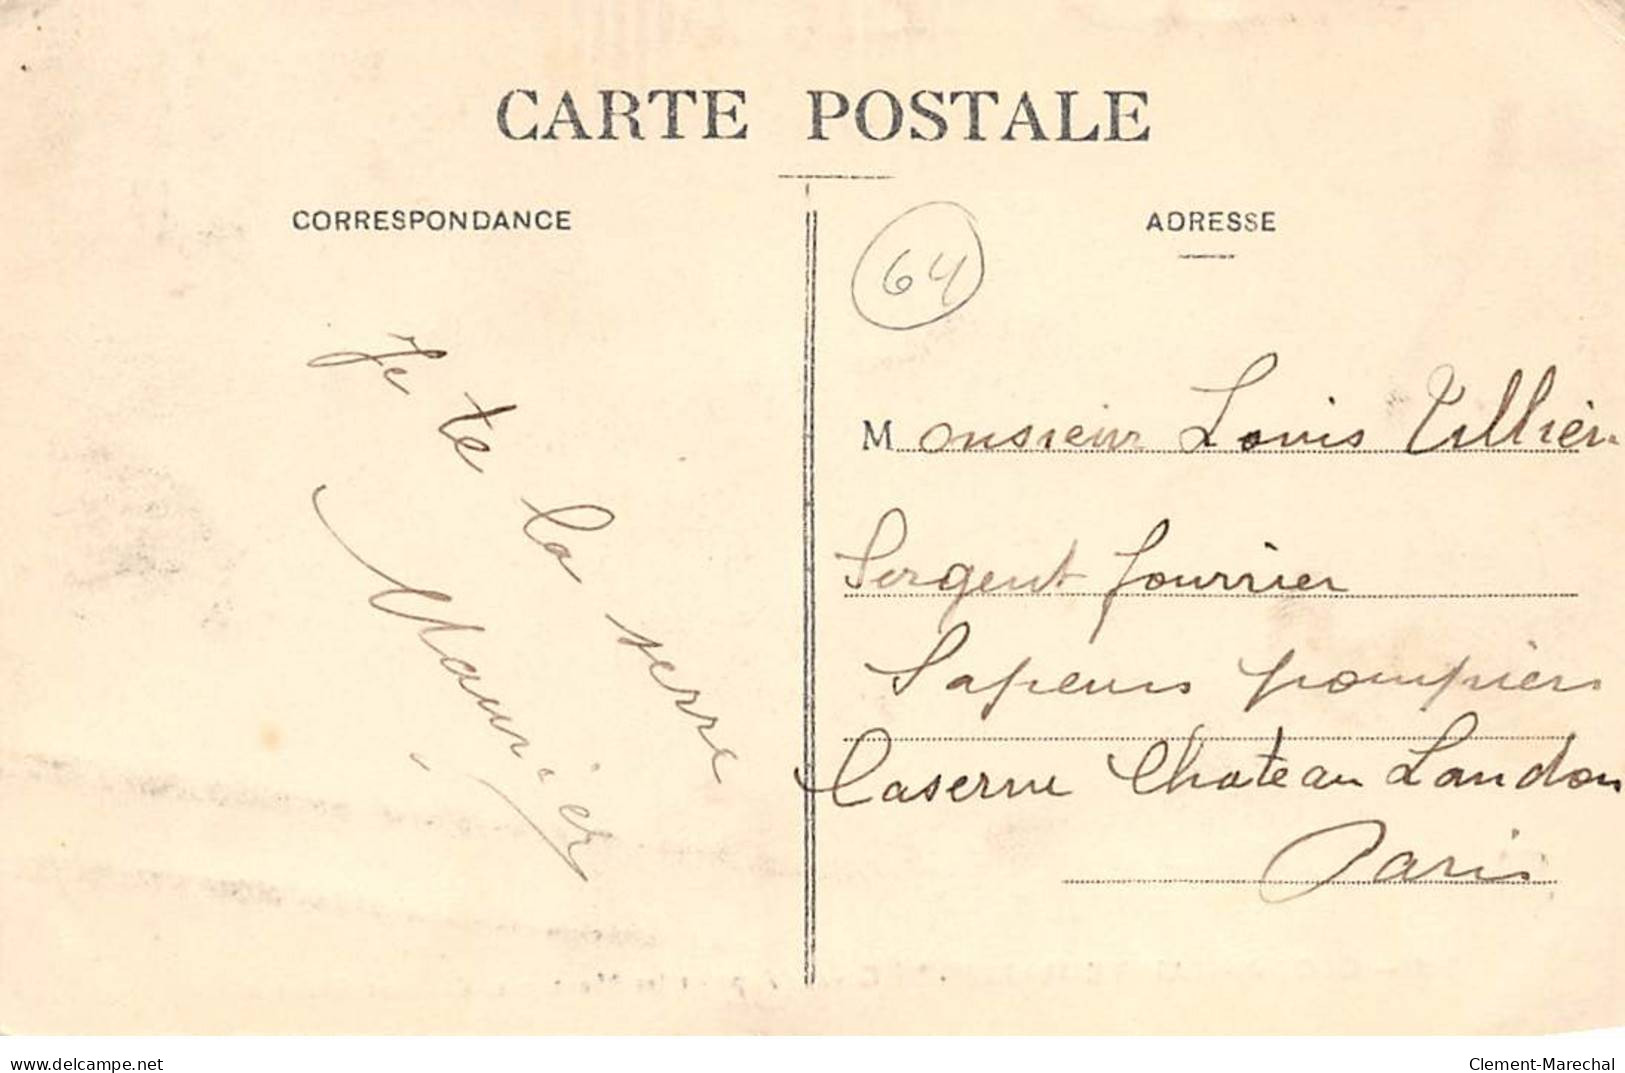 CARTE POSTALE
CORRESPONDANCE
ADRESSE
64
Je te la serre
Monsieur Louis
Sergent fourrier
Sapeurs pompiers
Caserne Chateau Landon
Paris
delcampe.net
Clement-Marechal